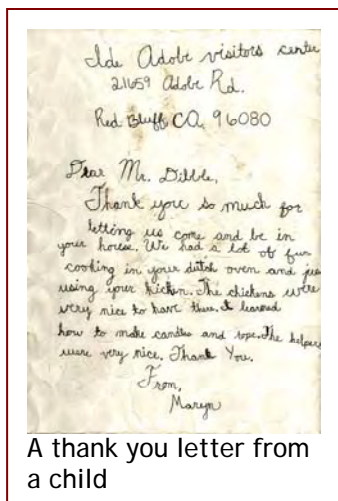 Ide Adobe visitors center
21659 Adobe Rd.
Red Bluff CA, 96080
Dear Mr. Dibble,
Thank you so much for
letting us come and be in
your house. We had a lot of fun
cooking in your dutch oven and
using your kichen. The chickens were
very nice to have there. I learned
how to make candles and rope. The helpers
were very nice. Thank You.
From,
A thank you letter from
a child